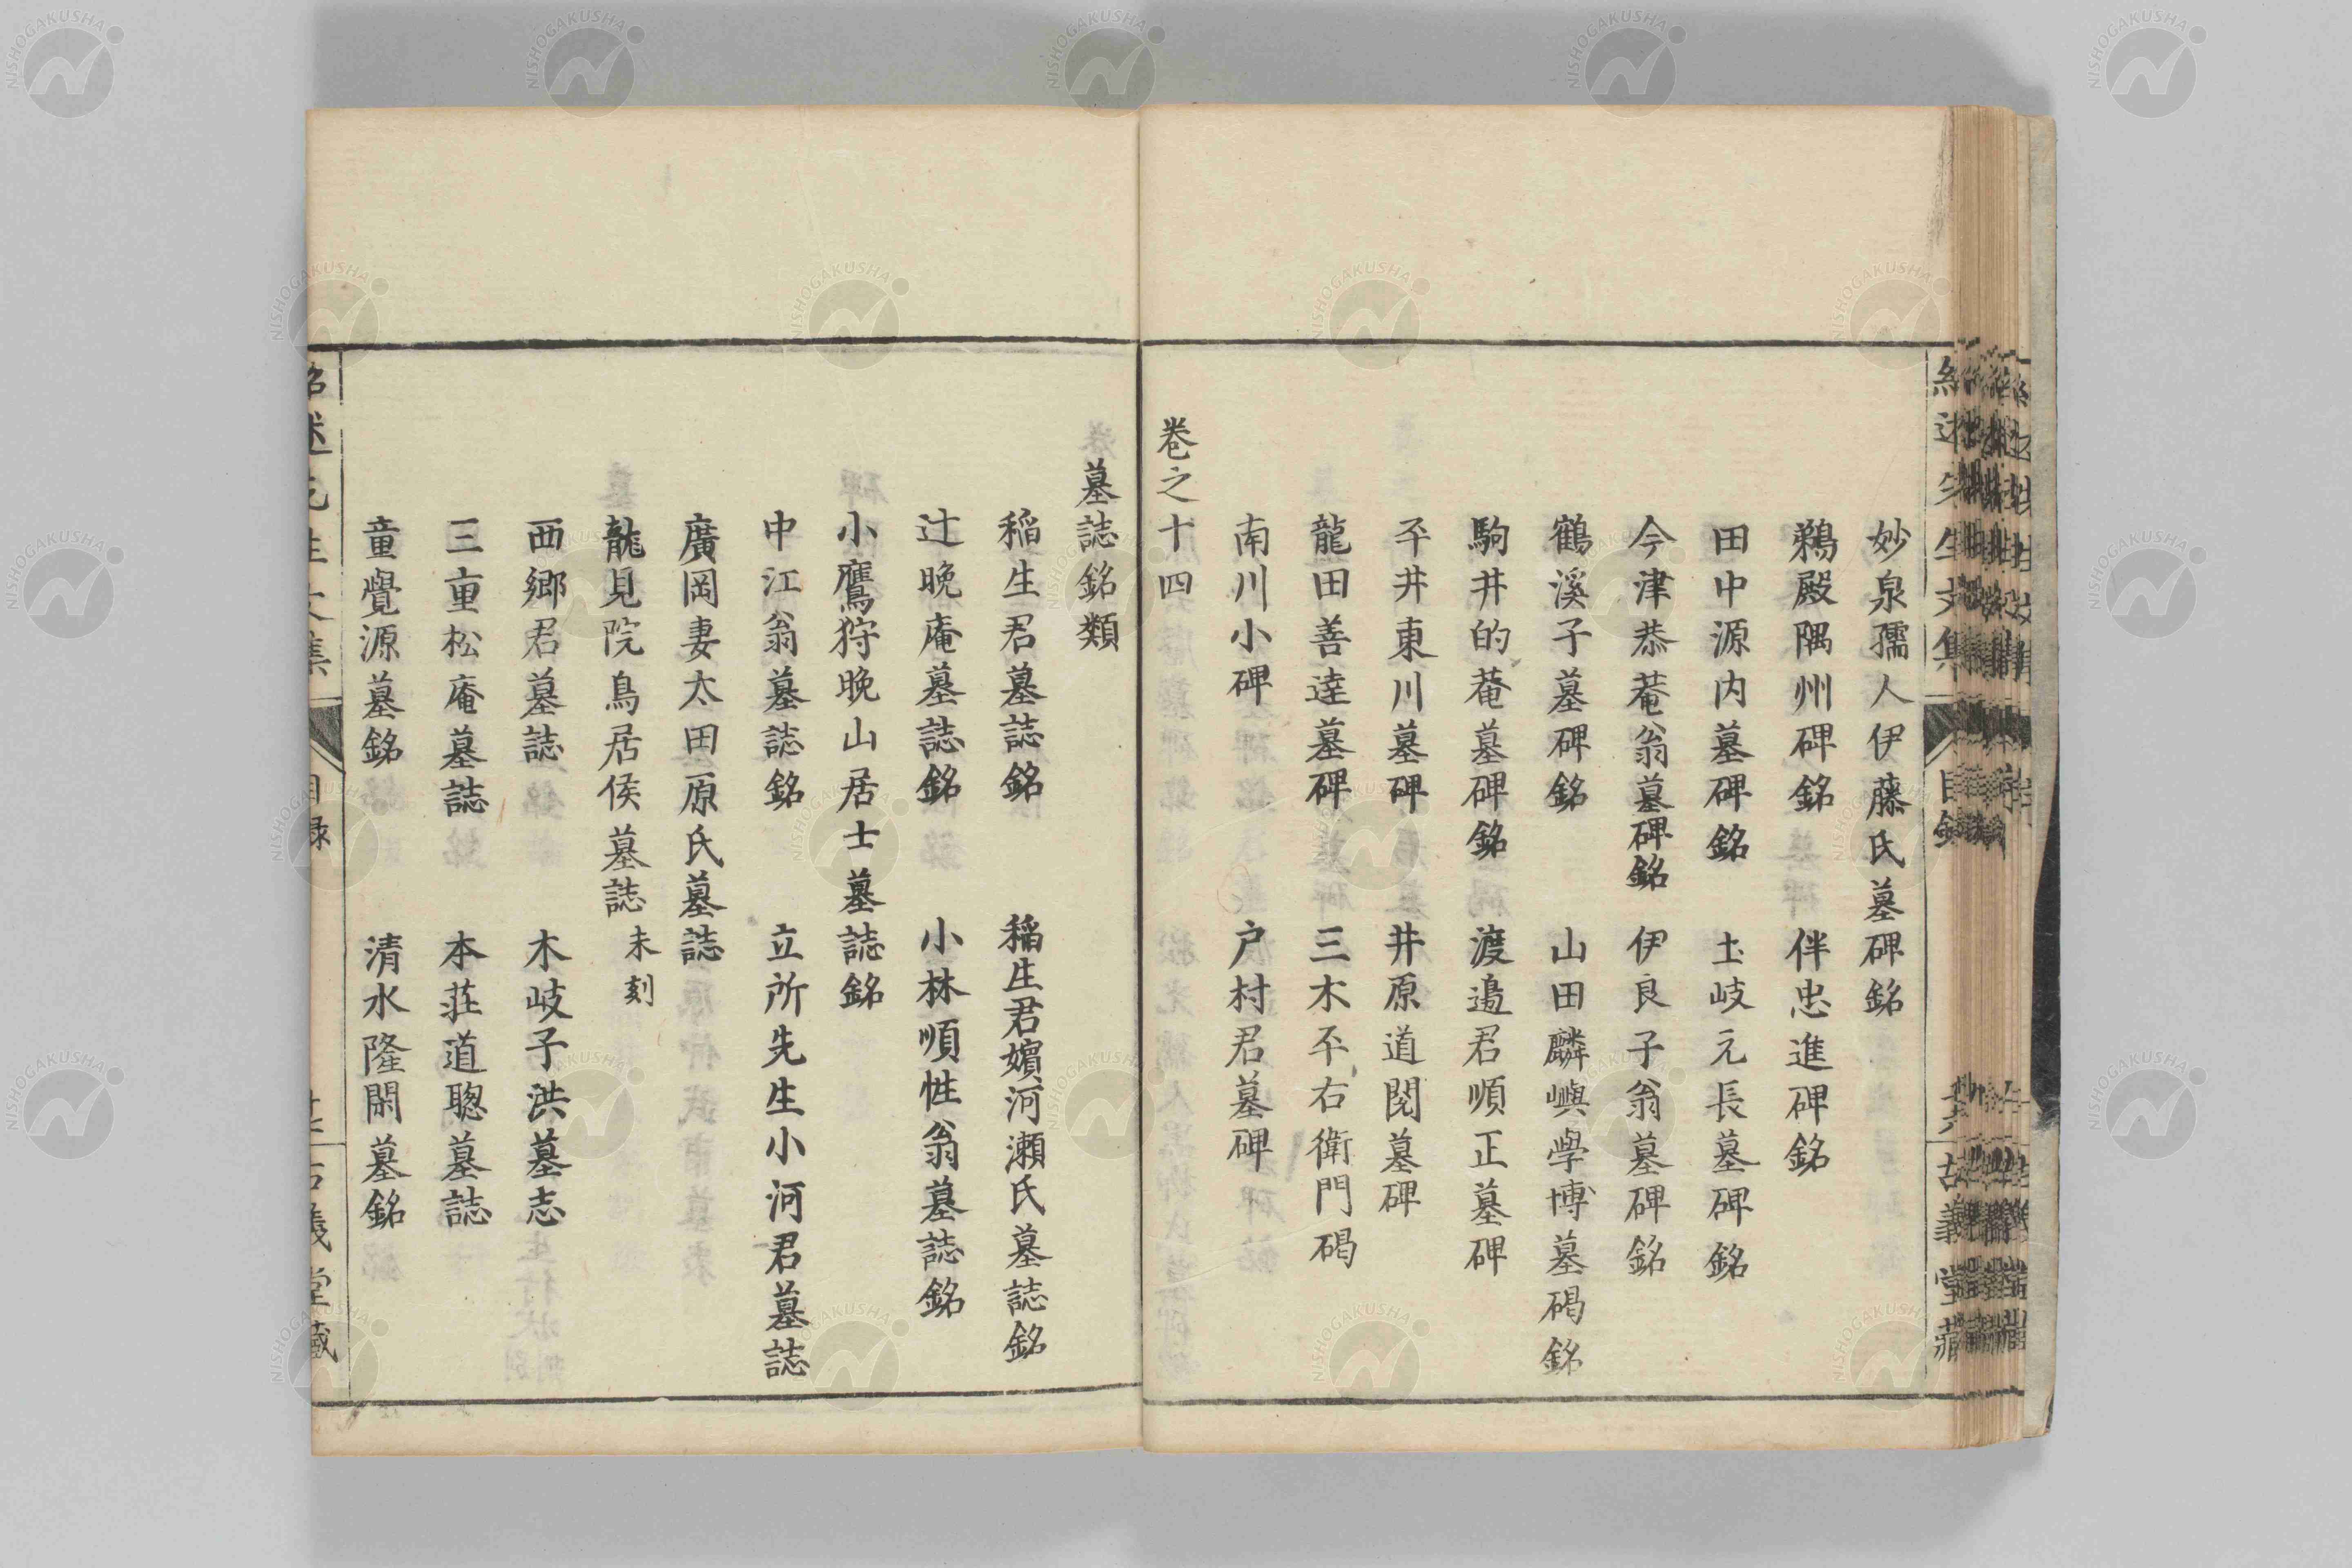 妙泉孺人伊藤氏墓碑銘
鵜殿隅州碑銘　伴忠進碑銘
田中源内墓碑銘　土岐元長墓碑銘
今津恭菴翁墓碑銘　伊良子翁墓碑銘
鶴溪子墓碑銘　山田麟嶼學博墓碣銘
駒井的菴墓碑銘　渡邉君順正墓碑
平井東川墓碑　井原道閲墓碑
龍田善達墓碑　三木平右衛門碣
南川小碑　戸村君墓碑
卷之十四
墓誌銘類
稲生君墓誌銘　稲生君嬪河瀬氏墓誌銘
辻晩庵墓誌銘　小林順性翁墓誌銘
小鷹狩晩山居士墓誌銘
中江翁墓誌銘　立所先生小河君墓誌
廣岡妻太田原氏墓誌
龍見院鳥居侯墓誌 未刻
西郷君墓誌　木岐子洪墓志
三重松庵墓誌　本莊道聰墓誌
童覺源墓銘　清水隆閑墓銘
紹述先生文集　目録　古義堂藏
NISHOGAKUSHA